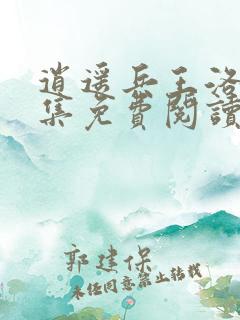 逍遥兵王洛
集免費閱讀
郭建保
未经同意禁止转载